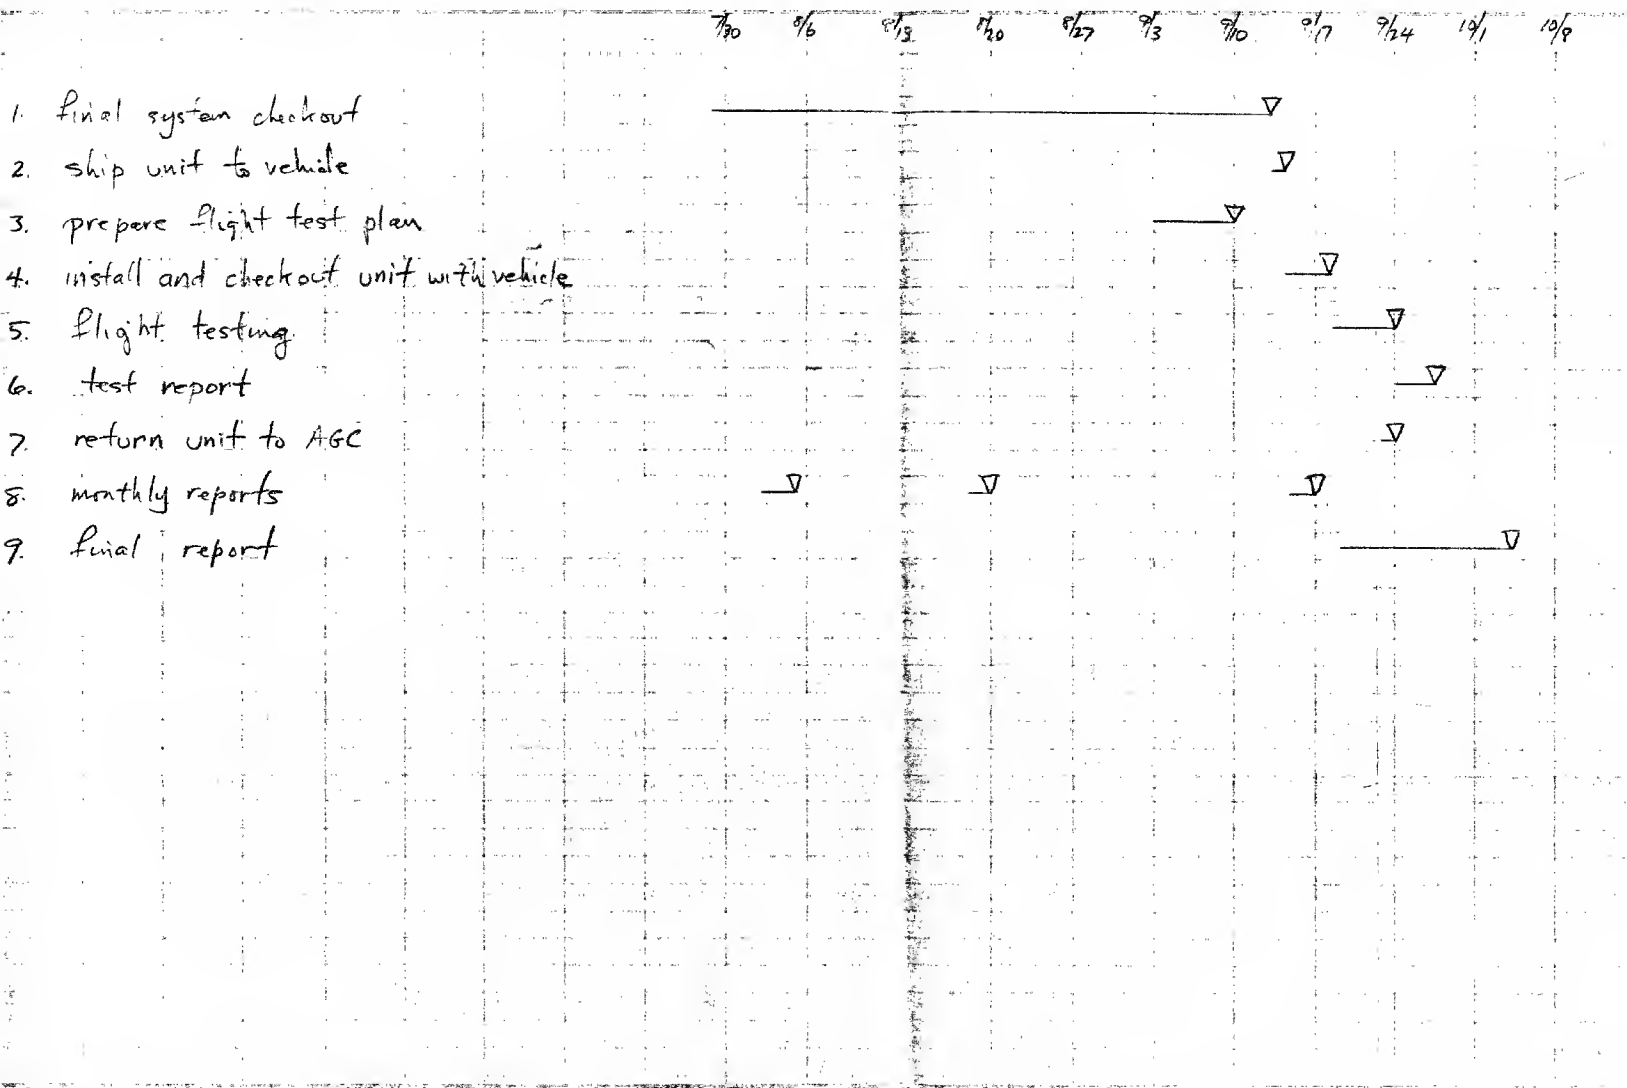 7/30 8/6 8/13 8/20 8/27 9/3 9/10 9/17 9/24 10/1 10/8
1. final system checkout
2. ship unit to vehicle
3. prepare flight test plan
4. install and checkout unit with vehicle
5. flight testing
6. test report
7. return unit to AGC
8. monthly reports
9. final report